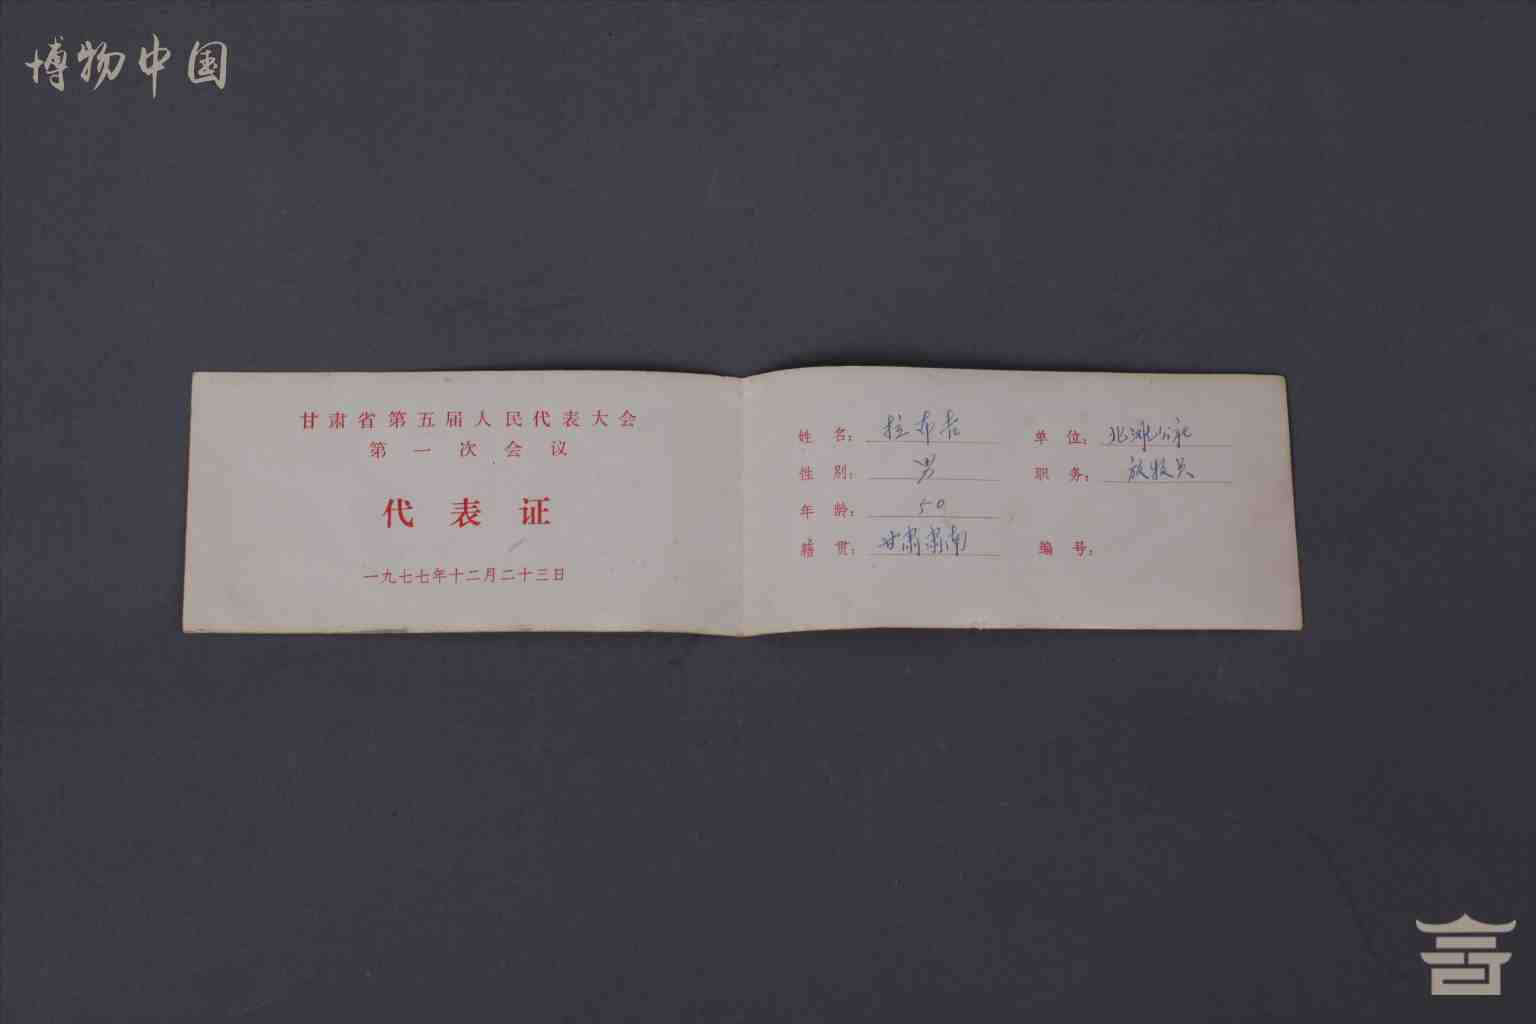 博物中国
甘肃省第五届人民代表大会
第一次会议
代表证
一九七七年十二月二十三日
姓名：拉布吉 单位：北滩公社
性别：男 职务：放牧员
年龄：50
籍贯：甘肃肃南 编号：